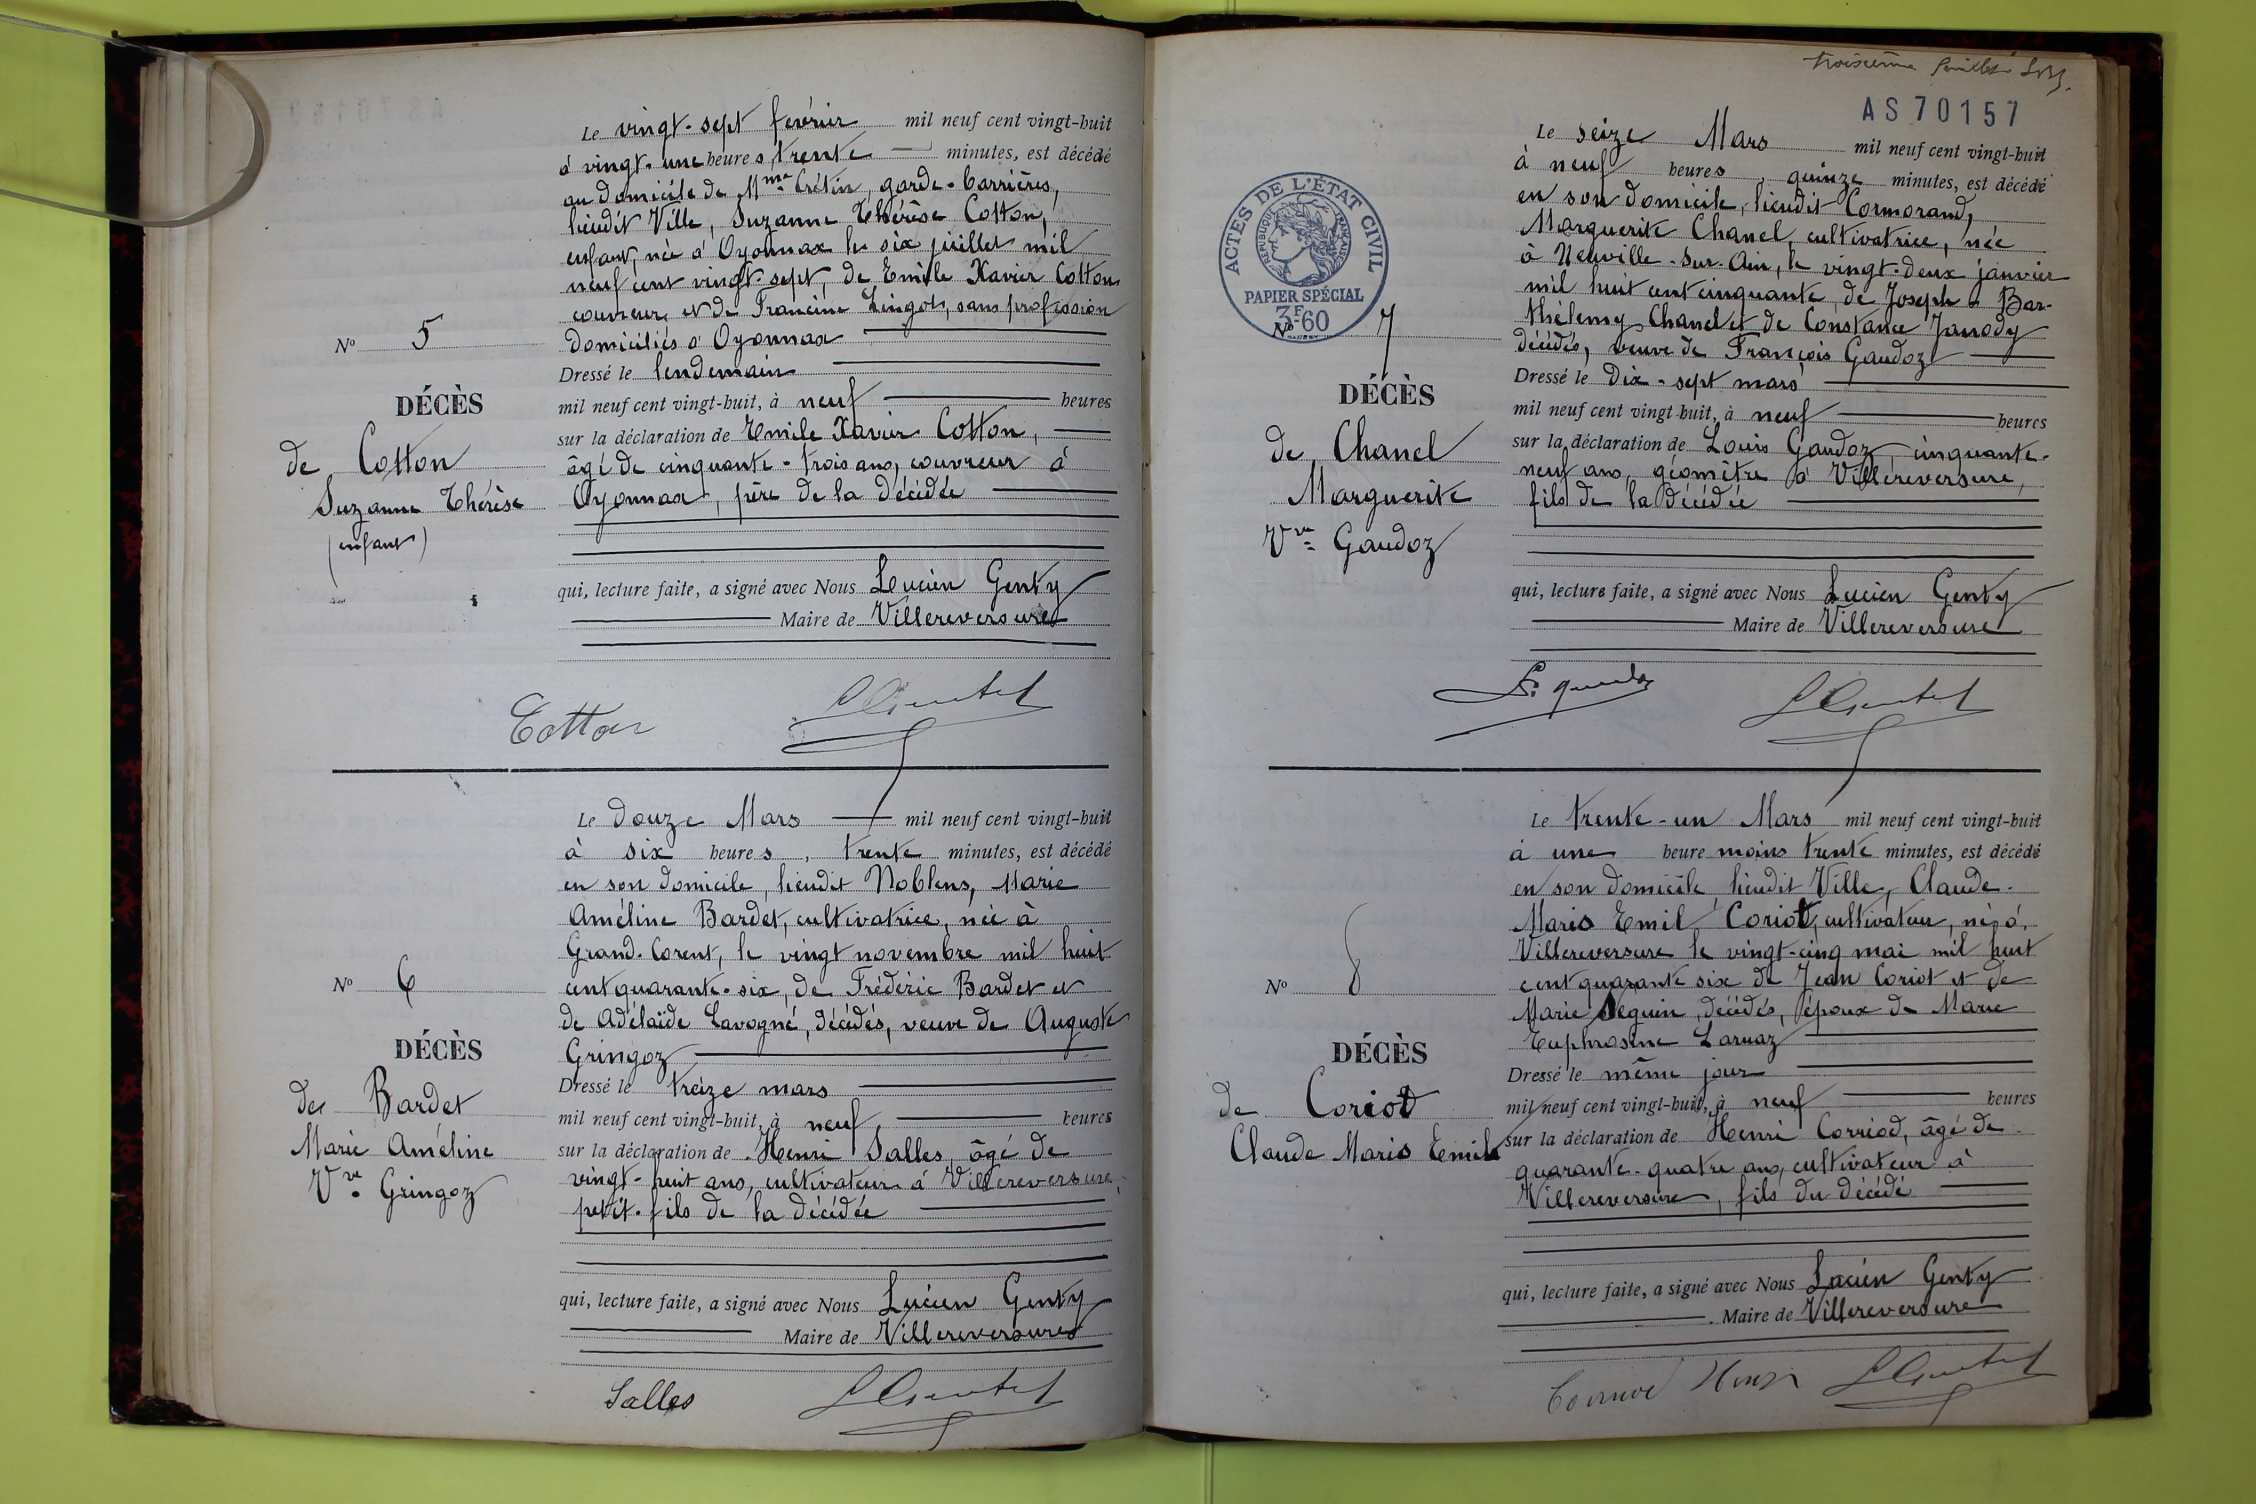 Le vingt-sept février mil neuf cent vingt-huit
à vingt-une heures, trente minutes, est décédé
au domicile de Mme Crétin, garde-barrières,
lieudit Ville, Suzanne Thérèse Cotton,
enfant, née à Oyonnax le six juillet mil
neuf cent vingt-sept, de Emile Xavier Cotton
couvreur, et de Francine Lingot, sans profession
domiciliés à Oyonnax
Dressé le lendemain
mil neuf cent vingt-huit, à neuf heures
sur la déclaration de Emile Xavier Cotton,
âgé de cinquante-trois ans, couvreur à
Oyonnax, père de la décédée
qui, lecture faite, a signé avec Nous Lucien Genty
Maire de Villereversure
Nº 5
DÉCÈS
de Cotton
Suzanne Thérèse
(enfant)
Cotton
Le douze Mars mil neuf cent vingt-huit
à six heures, trente minutes, est décédé
en son domicile, lieudit Noblens, Marie
Améline Bardet, cultivatrice, née à
Grand-Corent, le vingt novembre mil huit
cent quarante-six, de Frédéric Bardet et
de Adélaïde Lavogné, décédés, veuve de Auguste
Gringoz
Dressé le treize mars
mil neuf cent vingt-huit, à neuf heures
sur la déclaration de Henri Salles, âgé de
vingt-huit ans, cultivateur à Villereversure,
petit-fils de la décédée
qui, lecture faite, a signé avec Nous Lucien Genty
Maire de Villereversure
Nº 6
DÉCÈS
de Bardet
Marie Améline
Vve Gringoz
Salles
troisième feuillet
AS 70157
ACTES DE L'ÉTAT CIVIL
RÉPUBLIQUE FRANÇAISE
PAPIER SPÉCIAL
3F60
Le seize Mars mil neuf cent vingt-huit
à neuf heures, quinze minutes, est décédé
en son domicile, lieudit Cormorand,
Marguerite Chanel, cultivatrice, née
à Neuville-sur-Ain, le vingt-deux janvier
mil huit cent cinquante, de Joseph-Bar-
thélemy Chanel et de Constance Janody
décédés, veuve de François Gaudoz
Dressé le dix-sept mars
mil neuf cent vingt-huit, à neuf heures
sur la déclaration de Louis Gaudoz, cinquante-
neuf ans, géomètre à Villereversure,
fils de la décédée
qui, lecture faite, a signé avec Nous Lucien Genty
Maire de Villereversure
Nº 7
DÉCÈS
de Chanel
Marguerite
Vve Gaudoz
Le trente-un Mars mil neuf cent vingt-huit
à une heure moins trente minutes, est décédé
en son domicile, lieudit Ville, Claude-
Marie Emil Coriod, cultivateur, né à
Villereversure le vingt-cinq mai mil huit
cent quarante six de Jean Coriot et de
Marie Seguin, décédés, époux de Marie
Euphrosine Larnaz
Dressé le même jour
mil neuf cent vingt-huit, à neuf heures
sur la déclaration de Henri Corriod, âgé de
quarante-quatre ans, cultivateur à
Villereversure, fils du décédé
qui, lecture faite, a signé avec Nous Lucien Genty
Maire de Villereversure
Nº 8
DÉCÈS
de Coriod
Claude Marie Emile